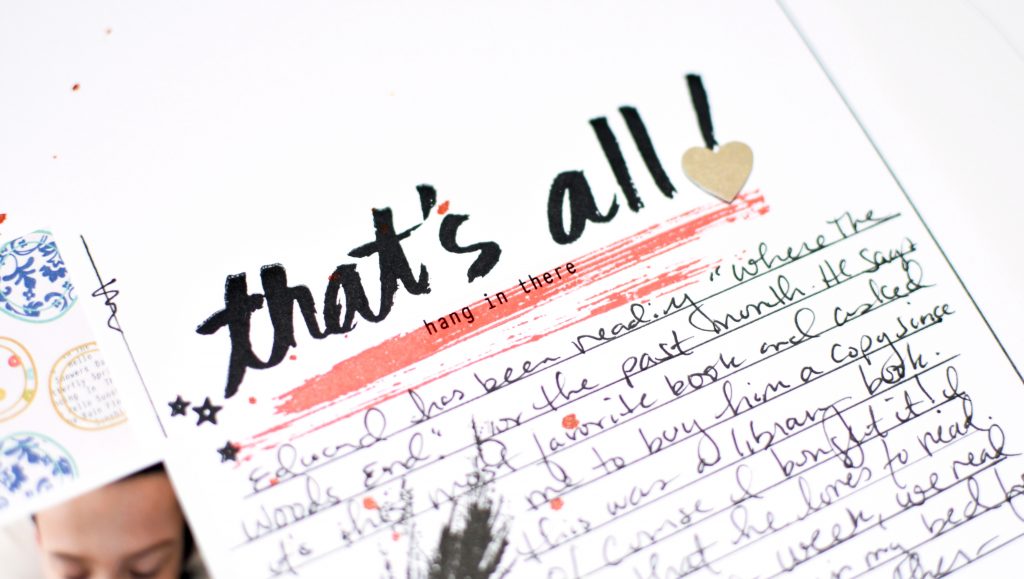 that's all!
hang in there
Edward has been reading "Where the
woods end." for the past month. He says
it's the most favorite book and asked
me to buy him a copy since
this was a library book.
of course I bought it! I
that he loves to read.
week, we read
my bed